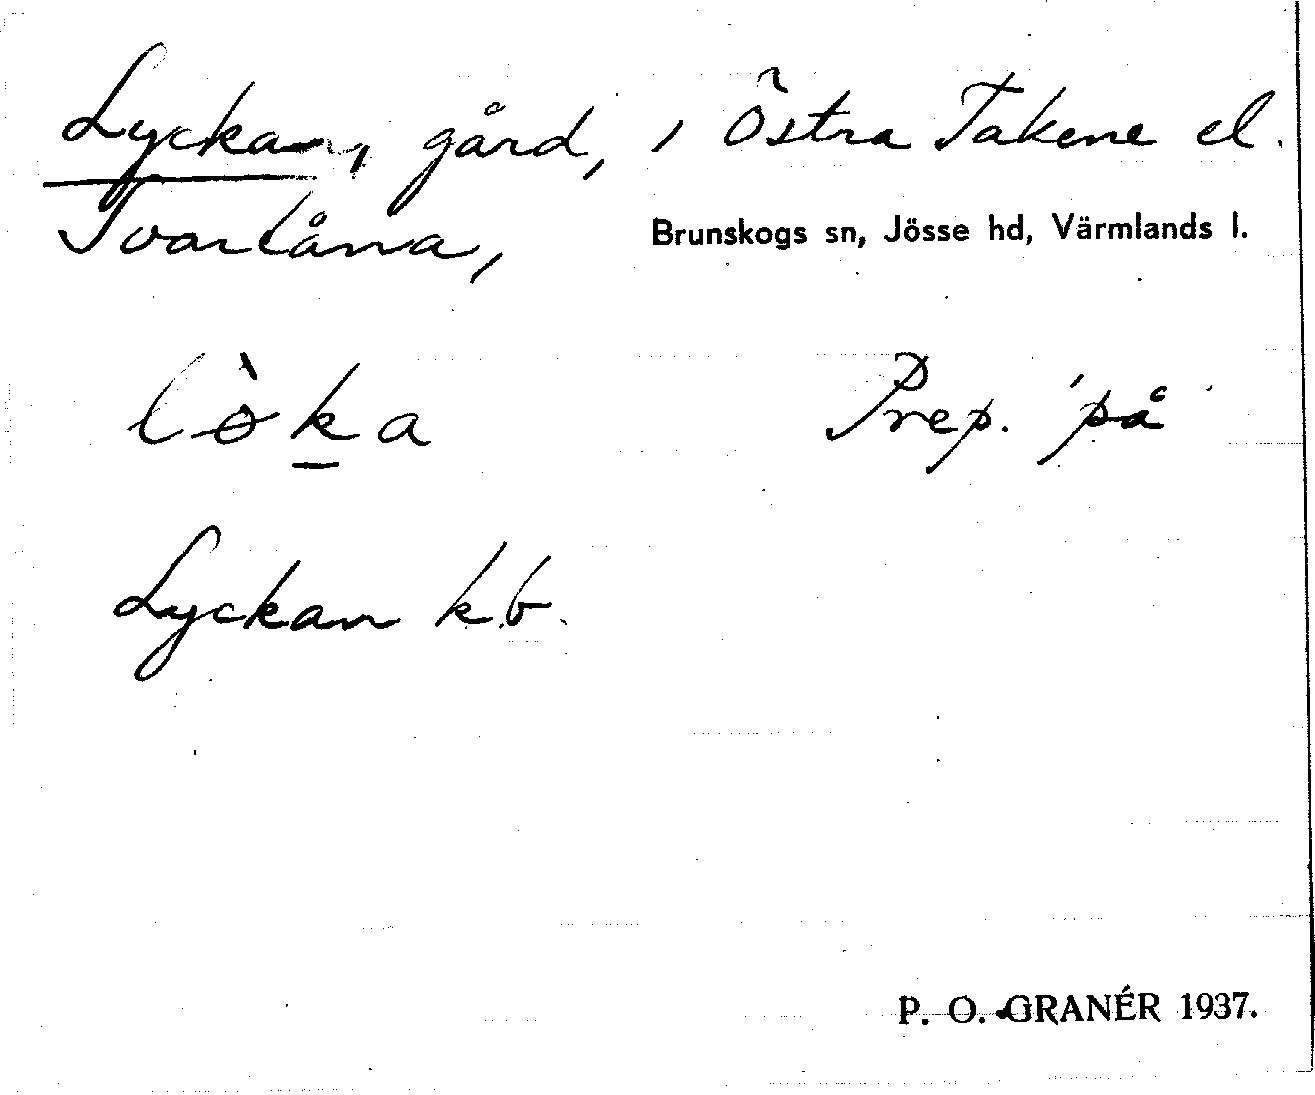 Lyckan, gård, i Östra Takene el.
Tvartåna, Brunskogs sn, Jösse hd, Värmlands l.
lø̀ka Prep. 'på'
Lyckan k.b.
P. O. GRANÉR 1937.